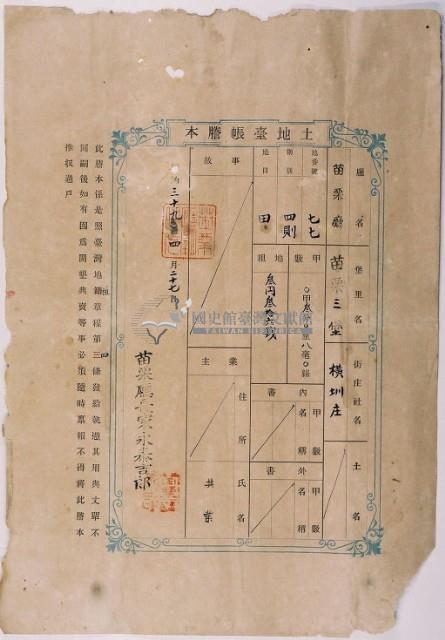 土地臺帳謄本
廳名
苗栗廳
堡里名
苗栗三堡
街庄社名
橫圳庄
土名
地番號
七七
則別
四則
地目
田
甲數
地租
叁円叁拾六錢
內書
甲數
名稱
外書
甲數
名稱
事故
業主
住所
氏名
共業
三十九年四月二十七日
苗栗廳長家永泰吉郎
此謄本係是照臺灣地籍章程第三條發給執憑其用與丈單不
同嗣後如有因爲開墾典賣等事必須隨時稟報不得將此謄本
推收過戶
國史館臺灣文獻館
TAIWAN HISTORICA